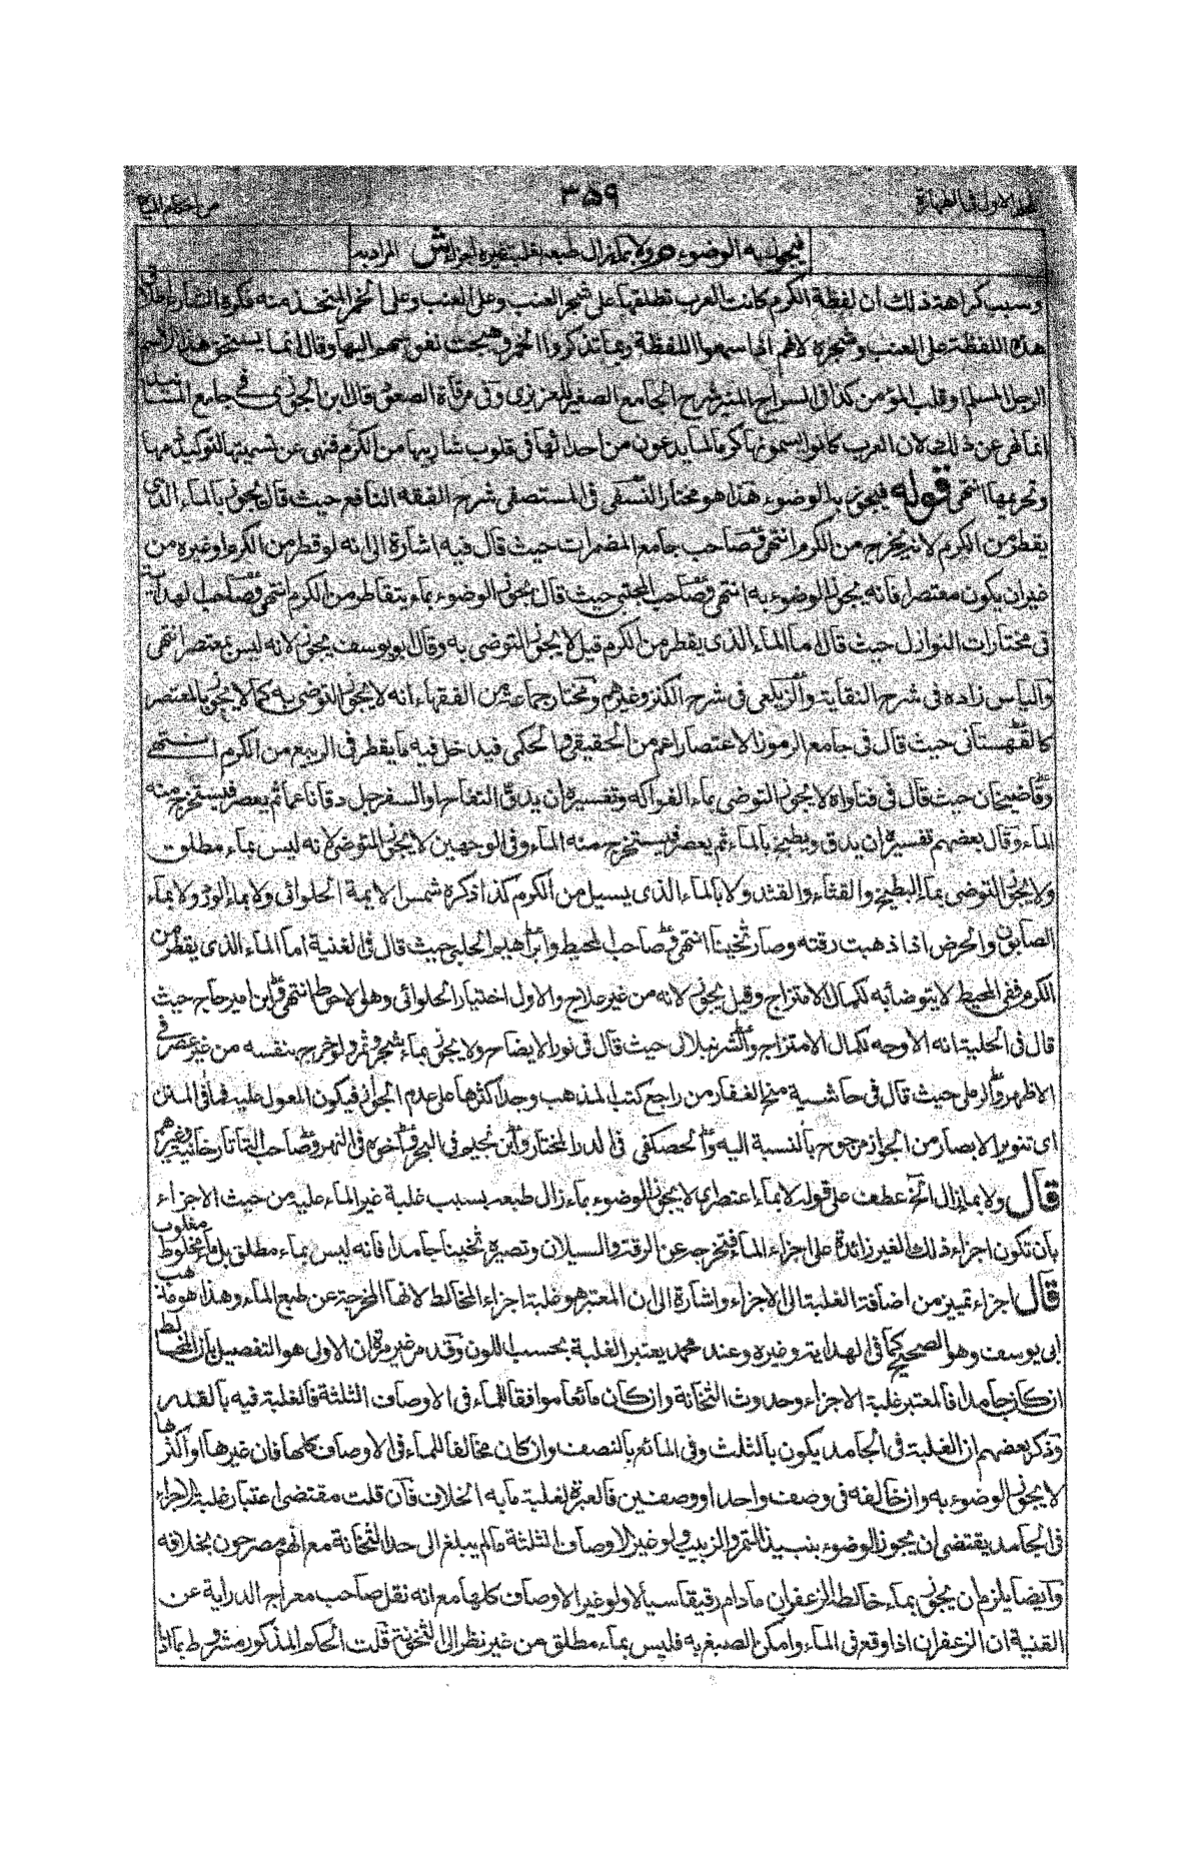 ٣٥٩
فيجوز به الوضوء هر ولا بماء زال طبعه بغلبة غيره اجزاء ش المراد به
وسبب كراهة ذلك ان لفظة الكرم كانت العرب تطلقها على شجر العنب وعلى العنب وعلى الخمر المتخذ منه فكره الشارع اطلاق
هذه اللفظة على العنب وشجره لانهم اذا سمعوا اللفظة ربما تذكروا الخمر وهيجت نفوسهم اليها وقال انما يستحق هذا الاسم
الرجل المسلم او قلب المؤمن كذا فى السراج المنير شرح الجامع الصغير للعزيزى وفى مرقاة الصعود قال ابن الجوزى فى جامع المسانيد
انما نهى عن ذلك لان العرب كانوا يسمونها كرما لما يدعون من احداثها فى قلوب شاربيها من الكرم فنهى عن تسميتها لتوكيد ذمها
وتحريمها انتهى قوله فيجوز به الوضوء هذا هو مختار النسفى فى المستصفى شرح الفقه النافع حيث قال يجوز بالماء الذى
يقطر من الكرم لانه يخرج من الكرم انتهى وصاحب جامع المضمرات حيث قال فيه اشارة الى انه لو قطر من الكرم او غيره من
غير ان يكون معتصرا فانه يجوز الوضوء به انتهى وصاحب المجتبى حيث قال يجوز الوضوء بماء يتقاطر من الكرم انتهى وصاحب الهداية
فى مختارات النوازل حيث قال اما الماء الذى يقطر من الكرم قيل لا يجوز التوضى به وقال ابو يوسف يجوز لانه ليس بمعتصر انتهى
والياس زاده فى شرح النقاية والزيلعى فى شرح الكنز وغيرهم ومختار جماعة من الفقهاء انه لا يجوز التوضى به كما لا يجوز بالمعتصر
كالقهستانى حيث قال فى جامع الرموز الاعتصار اعم من الحقيقى والحكمى فيدخل فيه ما يقطر فى الربيع من الكرم انتهى
وقاضيخان حيث قال فى فتاواه لا يجوز التوضى بماء الفواكه وتفسيره ان يدق التفاح او السفرجل دقا ناعما ثم يعصر فيستخرج منه
الماء وقال بعضهم تفسيره ان يدق ويطبخ بالماء ثم يعصر فيستخرج منه الماء وفى الوجهين لا يجوز التوضى لانه ليس بماء مطلق
ولا يجوز التوضى بماء البطيخ والقثاء والقثد ولا بالماء الذى يسيل من الكرم كذا ذكره شمس الايمة الحلوائى ولا بماء الورد ولا بماء
الصابون والحرض اذا ذهبت رقته وصار ثخينا انتهى وصاحب المحيط وابراهيم الحلبى حيث قال فى الغنية اما الماء الذى يقطر من
الكرم ففى المحيط لا يتوضأ به لكمال الامتزاج وقيل يجوز لانه من غير علاج والاول اختيار الحلوائى وهو الاحوط انتهى وابن امير حاج حيث
قال فى الحلية انه الاوجه لكمال الامتزاج والشرنبلالى حيث قال فى نور الايضاح ولا يجوز بماء شجر وثمر ولو خرج بنفسه من غير عصر فى
الاظهر والرملى حيث قال فى حاشية منح الغفار من راجع كتب المذهب وجد اكثرها على عدم الجواز فيكون المعول عليه فما فى المتن
اى تنوير الابصار من الجواز مرجوح بالنسبة اليه والحصكفى فى الدر المختار وابن نجيم فى البحر واخوه فى النهر وصاحب التاتارخانية وغيرهم
قال ولا بماء زال الخ عطف على قوله لا بماء اعتصر اى لا يجوز الوضوء بماء زال طبعه بسبب غلبة غير الماء عليه من حيث الاجزاء
بان تكون اجزاء ذلك الغير زائدة على اجزاء الماء فتخرجه عن الرقة والسيلان وتصيره ثخينا جامدا فانه ليس بماء مطلق بل ماء مخلوط مغلوب
قال اجزاء تمييز من اضافة الغلبة الى الاجزاء واشارة الى ان المعتبر هو غلبة اجزاء المخالط لانها المخرجة عن طبع الماء وهذا هو مذهب
ابى يوسف وهو الصحيح كما فى الهداية وغيره وعند محمد يعتبر الغلبة بحسب اللون وقد مر غير مرة ان الاول هو التفصيل بان المخالط
ان كان جامدا فالمعتبر غلبة الاجزاء وحدوث الثخانة وان كان مائعا موافقا للماء فى الاوصاف الثلثة فالغلبة فيه بالقدر
وذكر بعضهم ان الغلبة فى الجامد يكون بالثلث وفى المائع بالنصف وان كان مخالفا للماء فى الاوصاف كلها فان غيرها او اكثرها
لا يجوز الوضوء به وان خالفه فى وصف واحد او وصفين فالعبرة لغلبة ما به الخلاف فان قلت مقتضى اعتبار غلبة الاجزاء
فى الجامد يقتضى ان يجوز الوضوء بنبيذ التمر والزبيب ولو غير الاوصاف الثلثة مالم يبلغ الى حد الثخانة مع انهم مصرحون بخلافه
وايضا يلزم ان يجوز بماء خالطه الزعفران مادام رقيقا سيالا ولو غير الاوصاف كلها مع انه نقل صاحب معراج الدراية عن
القنية ان الزعفران اذا وقع فى الماء وامكن الصبغ به فليس بماء مطلق من غير نظر الى الثخونة قلت الحكم المذكور مشروط بما اذا